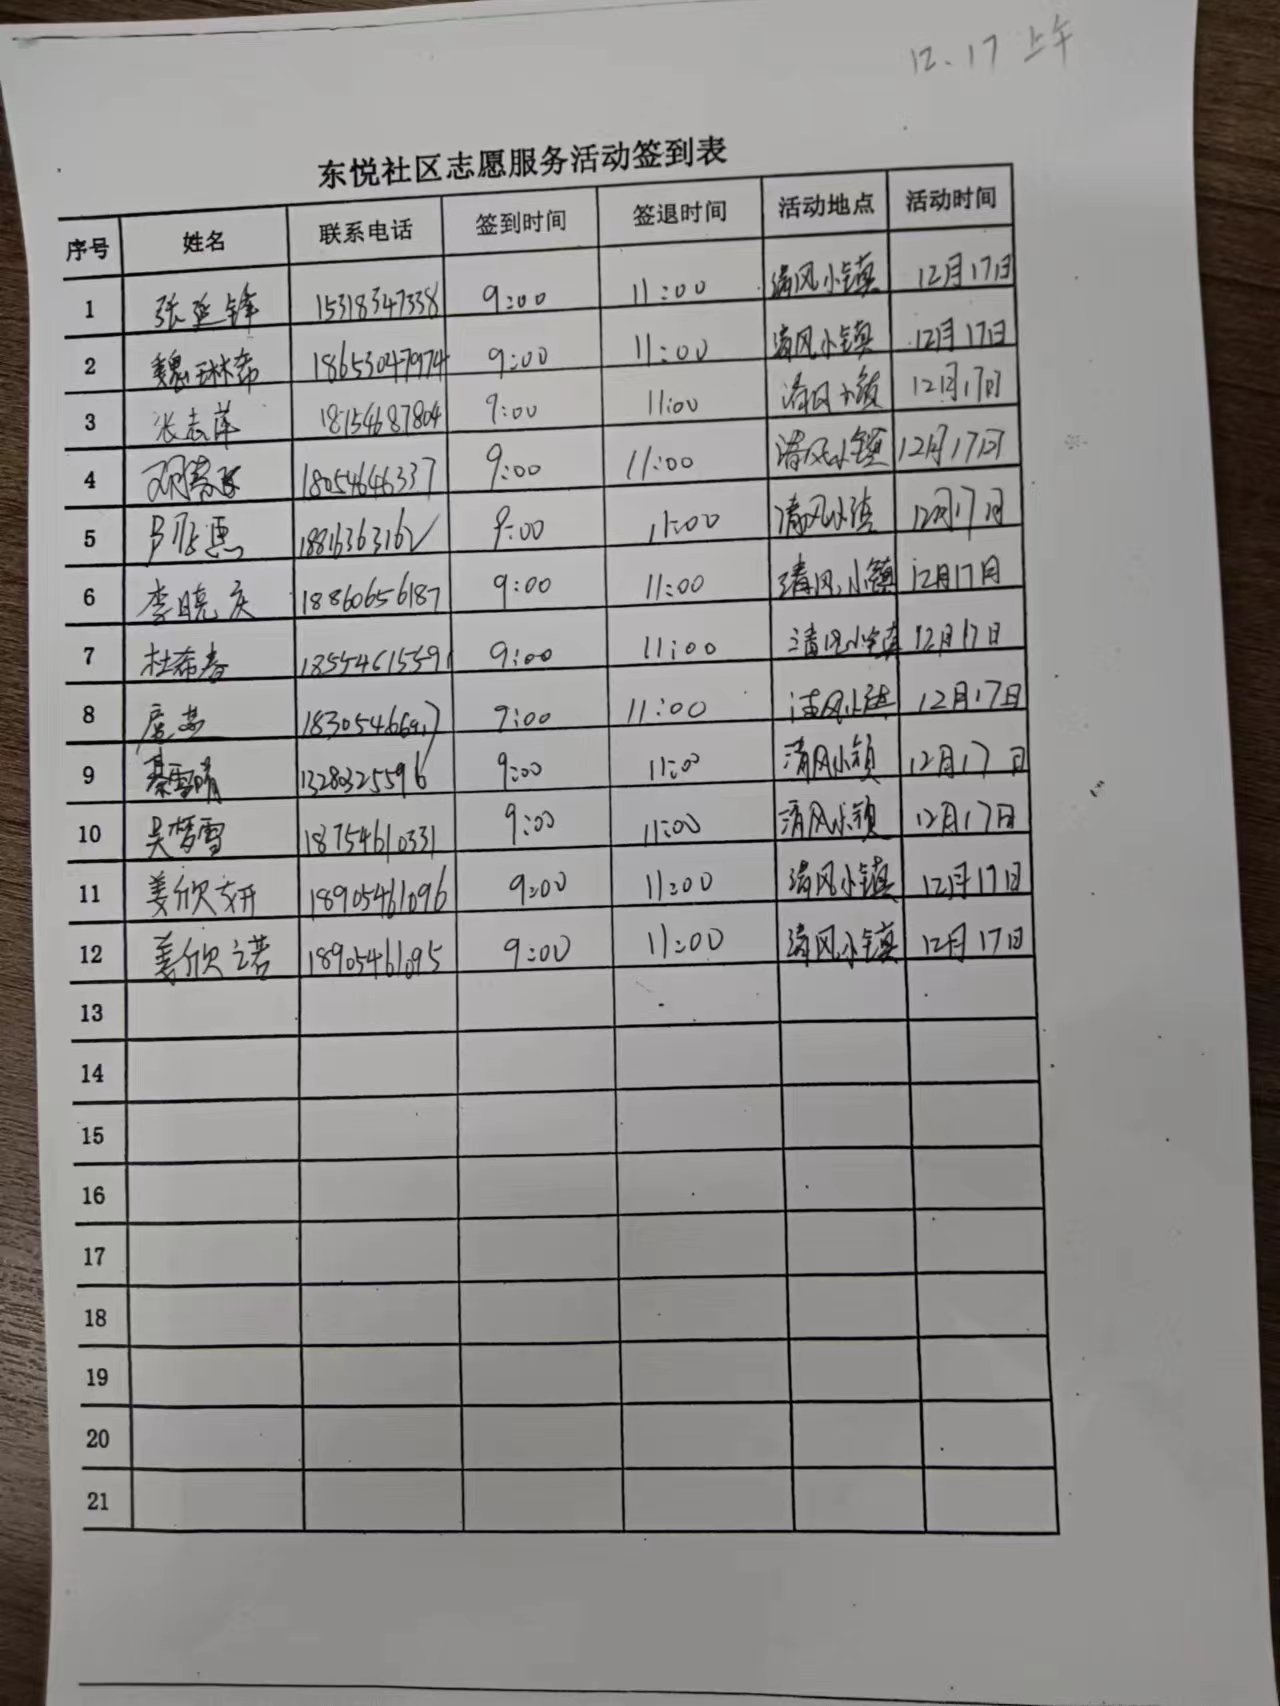 12.17 上午
东悦社区志愿服务活动签到表
序号 姓名 联系电话 签到时间 签退时间 活动地点 活动时间
1 张延锋 15318347338 9:00 11:00 清风小镇 12月17日
2 魏琳希 18653047974 9:00 11:00 清风小镇 12月17日
3 张志萍 18154687804 9:00 11:00 清风小镇 12月17日
4 18054646337 9:00 11:00 清风小镇 12月17日
5 9:00 11:00 清风小镇 12月17日
6 李晓庆 18860656187 9:00 11:00 清风小镇 12月17日
7 杜希春 18554615591 9:00 11:00 清风小镇 12月17日
8 9:00 11:00 清风小镇 12月17日
9 綦雪晴 13280325596 9:00 11:00 清风小镇 12月17日
10 吴梦雪 18754610331 9:00 11:00 清风小镇 12月17日
11 姜欣妍 18905461096 9:00 11:00 清风小镇 12月17日
12 姜欣诺 18905461095 9:00 11:00 清风小镇 12月17日
13
14
15
16
17
18
19
20
21